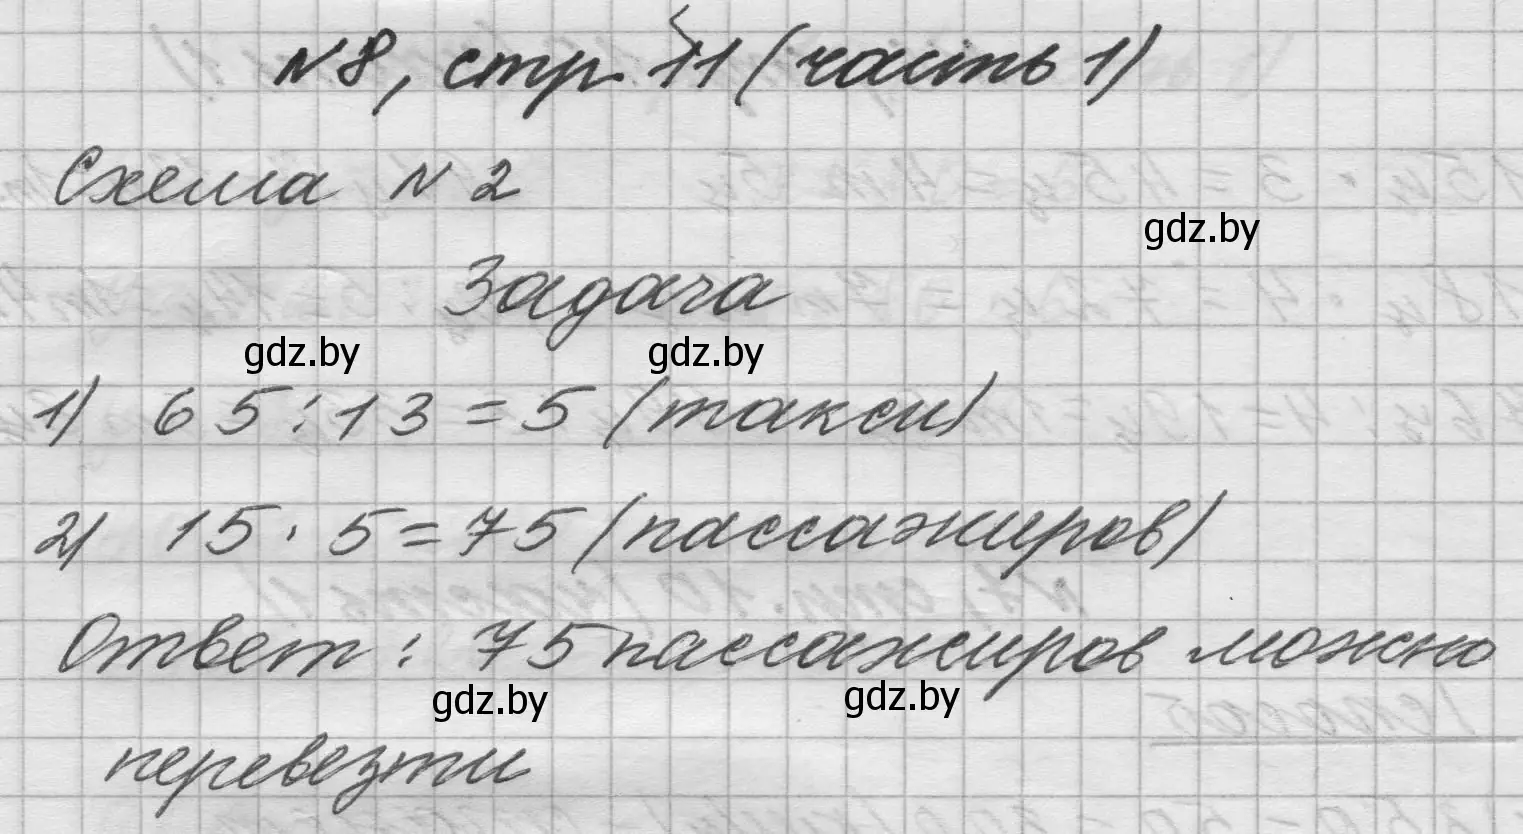 №8, стр. 11 (часть 1)
Схема №2
gdz.by
Задача
gdz.by gdz.by
1) 65:13=5 (такси)
2) 15·5=75 (пассажиров)
Ответ: 75 пассажиров можно
gdz.by gdz.by
перевезти